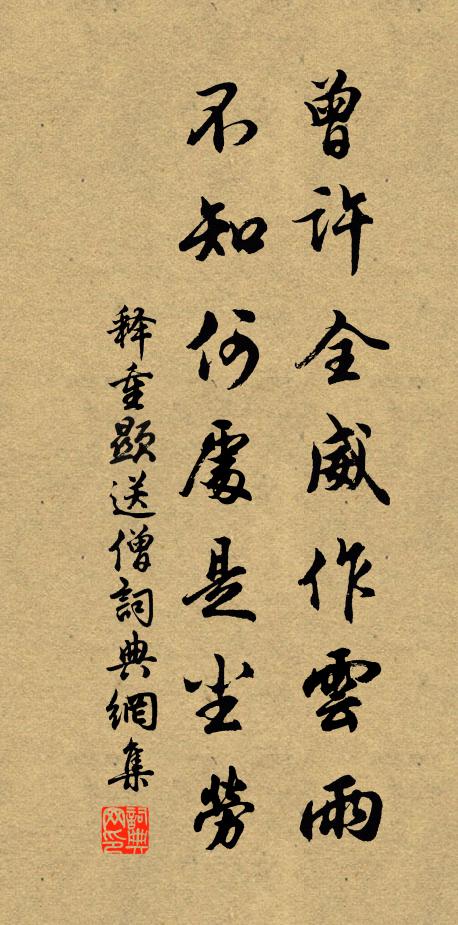 曾许全威作雲雨
不知何處是尘勞
释重顯送僧詞典網集
詞典网印